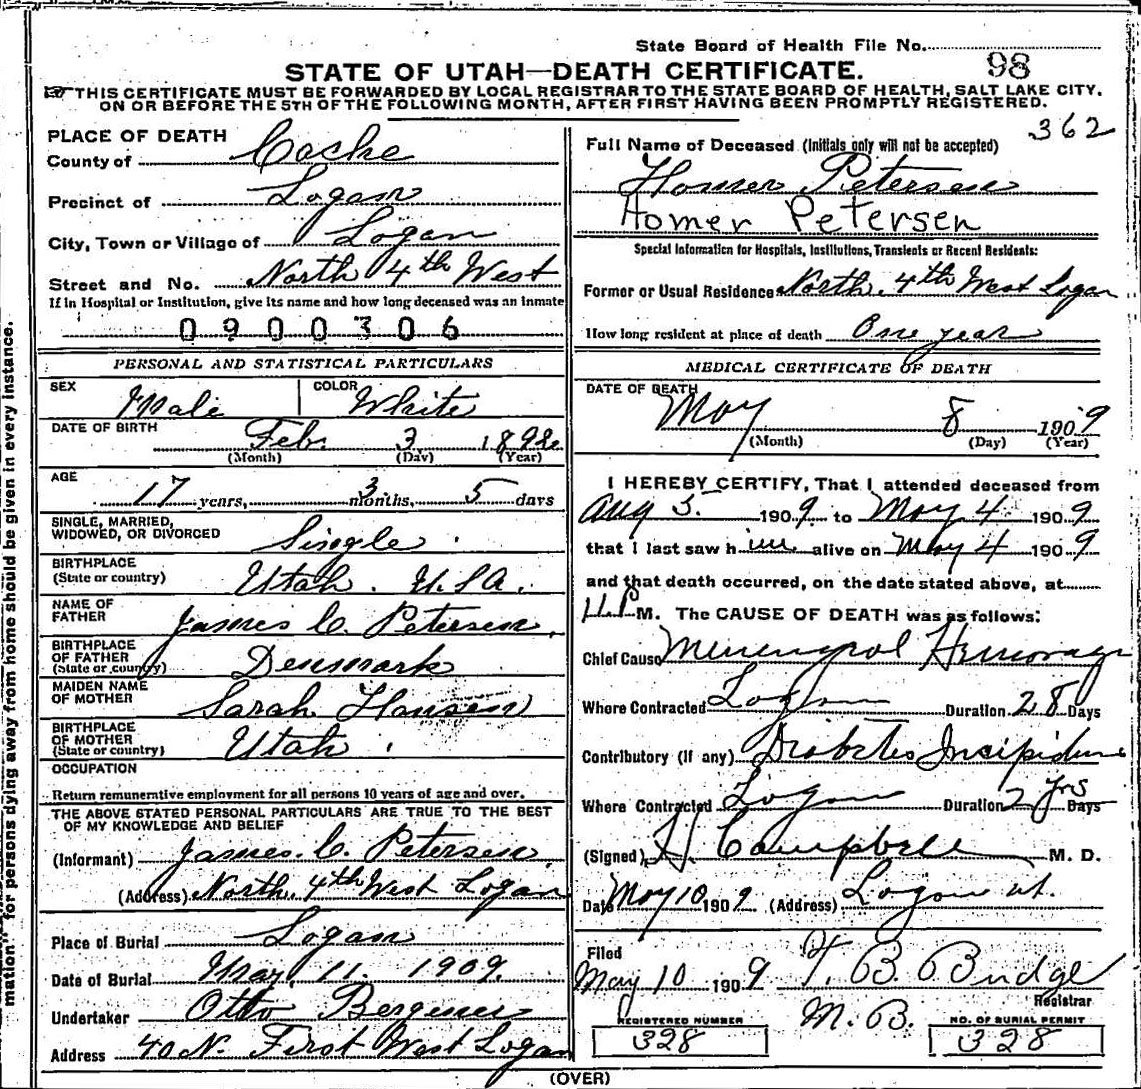 State Board of Health File No. 98
STATE OF UTAH—DEATH CERTIFICATE.
THIS CERTIFICATE MUST BE FORWARDED BY LOCAL REGISTRAR TO THE STATE BOARD OF HEALTH, SALT LAKE CITY,
ON OR BEFORE THE 5TH OF THE FOLLOWING MONTH, AFTER FIRST HAVING BEEN PROMPTLY REGISTERED.
362
PLACE OF DEATH
County of Cache
Precinct of Logan
City, Town or Village of Logan
Street and No. North 4th West
If in Hospital or Institution, give its name and how long deceased was an inmate
0900306
PERSONAL AND STATISTICAL PARTICULARS
SEX Male COLOR White
DATE OF BIRTH
Feb. 3 1892
(Month) (Day) (Year)
AGE
17 years, 3 months, 5 days
SINGLE, MARRIED,
WIDOWED, OR DIVORCED Single
BIRTHPLACE
(State or country) Utah. U.S.A.
NAME OF
FATHER James C. Petersen.
BIRTHPLACE
OF FATHER
(State or country) Denmark
MAIDEN NAME
OF MOTHER Sarah Hansen
BIRTHPLACE
OF MOTHER
(State or country) Utah.
OCCUPATION
Return remunerative employment for all persons 10 years of age and over.
THE ABOVE STATED PERSONAL PARTICULARS ARE TRUE TO THE BEST
OF MY KNOWLEDGE AND BELIEF
(Informant) James. C. Petersen.
(Address) North. 4th West Logan
Place of Burial Logan
Date of Burial May. 11. 1909.
Undertaker Otto
Address 40 N. First West Logan
Full Name of Deceased (Initials only will not be accepted)
Homer Petersen
Homer Petersen
Special Information for Hospitals, Institutions, Transients or Recent Residents:
Former or Usual Residence North. 4th West Logan
How long resident at place of death One year
MEDICAL CERTIFICATE OF DEATH
DATE OF DEATH
May 8 1909
(Month) (Day) (Year)
I HEREBY CERTIFY, That I attended deceased from
Aug 5 1909 to May 4 1909
that I last saw him alive on May 4 1909
and that death occurred, on the date stated above, at
11 P M. The CAUSE OF DEATH was as follows:
Chief Cause
Where Contracted Logan Duration 28 Days
Contributory (if any) Diabetes
Where Contracted Logan Duration 2 yrs Days
(Signed) H Campbell M. D.
Date May 10 1909 (Address) Logan ut.
Filed
May 10 1909 T. B. Budge
Registrar
M. B.
REGISTERED NUMBER
328
NO. OF BURIAL PERMIT
328
(OVER)
mation" for persons dying away from home should be given in every instance.